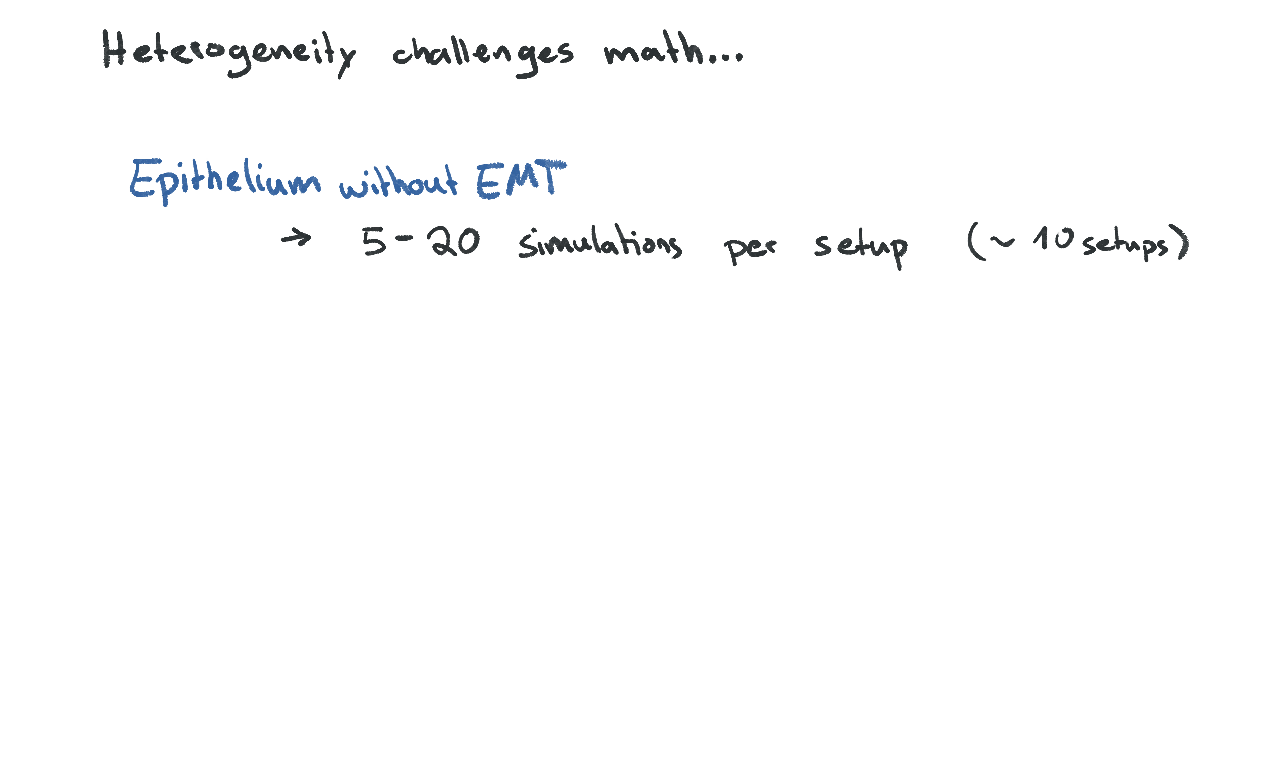 Heterogeneity challenges math...
Epithelium without EMT
→ 5-20 simulations per setup (~ 10 setups)